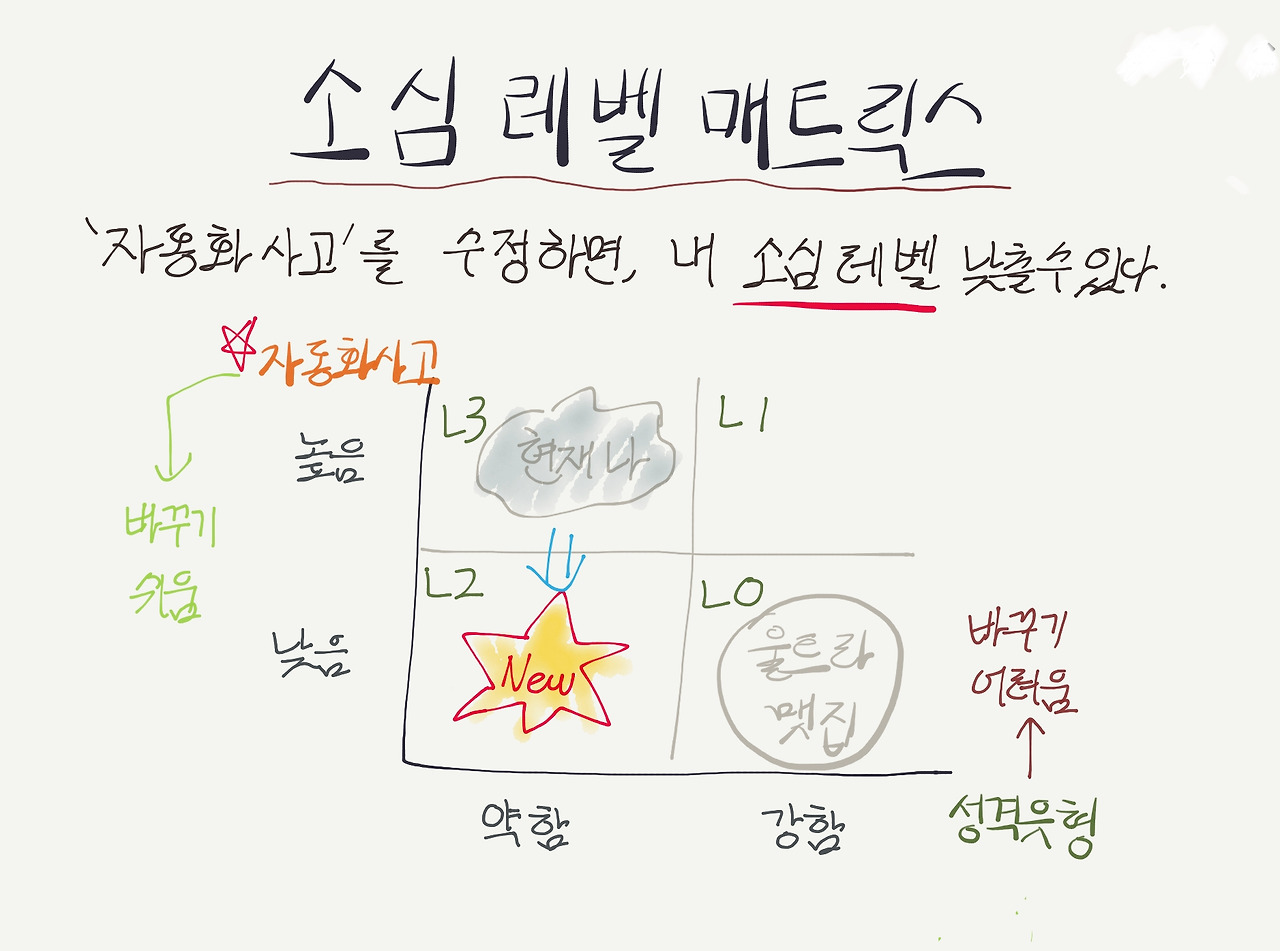 소심 레벨 매트릭스
'자동화 사고'를 수정하면, 내 소심 레벨 낮출수 있다.
자동화사고
L3
현재 나
L1
높음
바꾸기
쉬움
L2
L0
New
울트라
맷집
낮음
바꾸기
어려움
약함
강함
성격유형